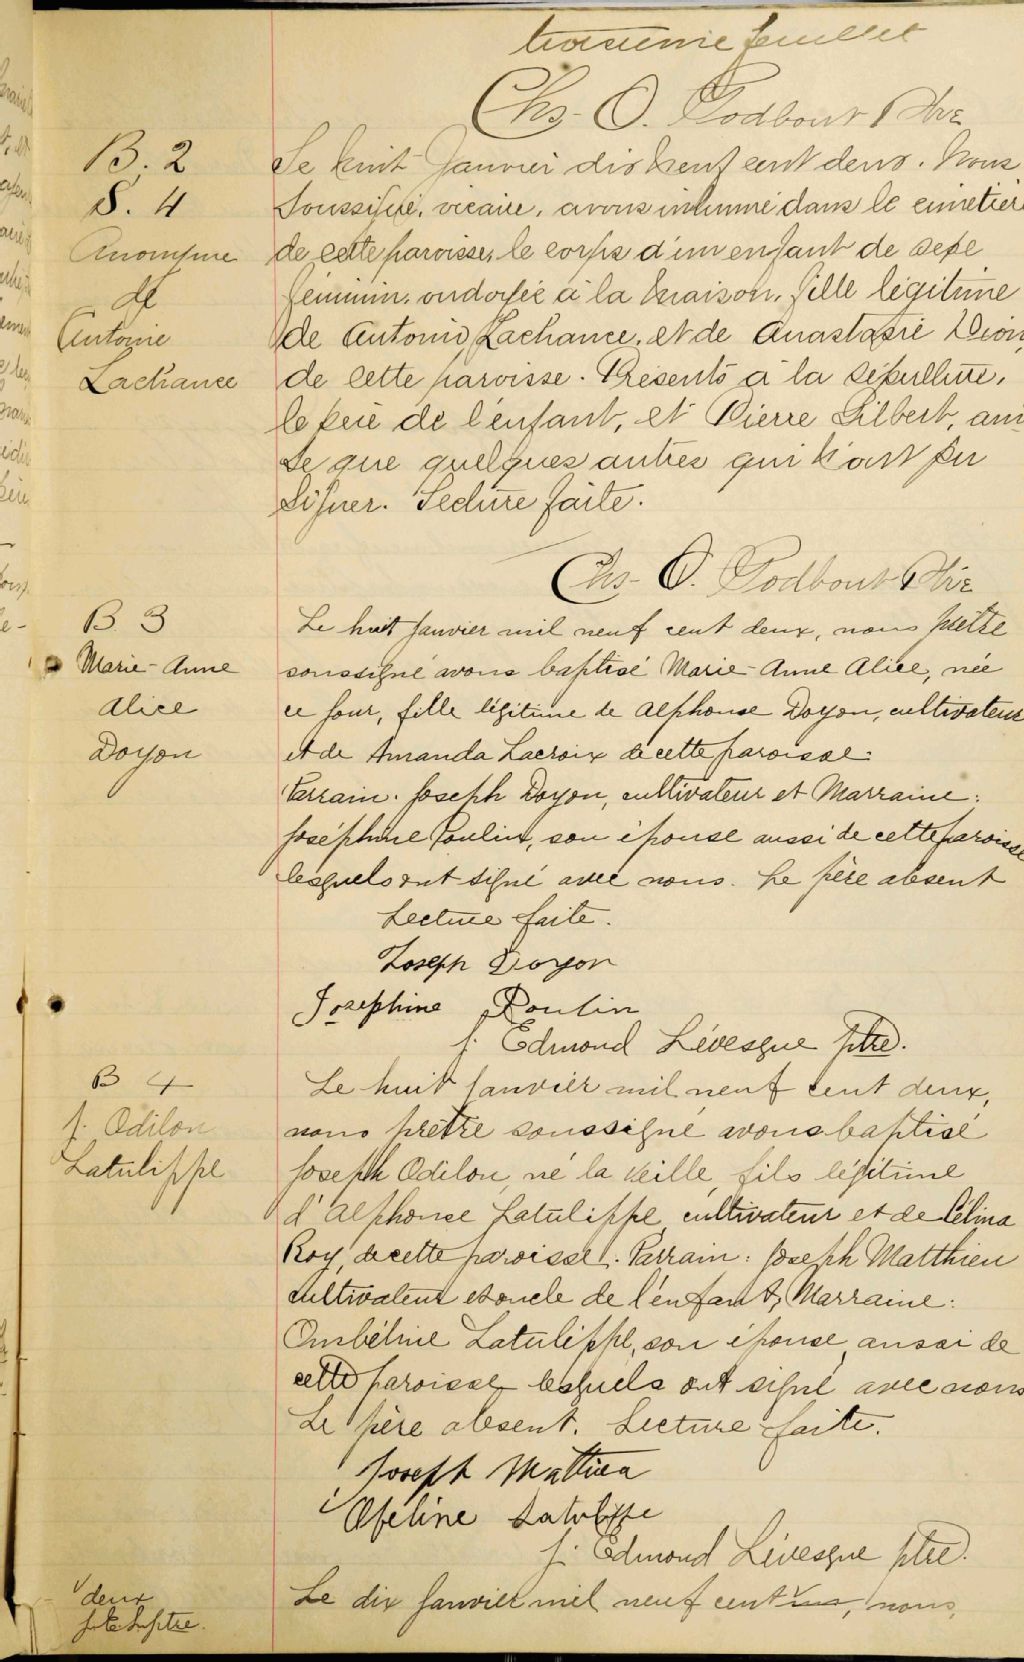 troisième feuillet
Chs. O. Godbout Ptre
B. 2
S. 4
Anonyme
de
Antoine
Lachance
Le huit Janvier dix neuf cent deux. Nous
soussigné, vicaire, avons inhumé dans le cimetière
de cette paroisse, le corps d'un enfant de sexe
féminin, ondoyée à la maison, fille légitime
de Antonio Lachance, et de Anastasie Dion
de cette paroisse. Présents à la sépulture,
le père de l'enfant, et Pierre Gilbert, ain
se que quelques autres qui n'ont pu
signer. Lecture faite.
Chs. O. Godbout Ptre
B 3
Marie-Anne
Alice
Doyon
Le huit Janvier mil neuf cent deux, nous prêtre
soussigné avons baptisé Marie-Anne Alice, née
ce jour, fille légitime de Alphonse Doyon, cultivateur
et de Amanda Lacroix de cette paroisse.
Parrain. Joseph Doyon, cultivateur et Marraine:
Joséphine Poulin, son épouse aussi de cette paroisse
lesquels ont signé avec nous. Le père absent
Lecture faite.
Joseph Doyon
Josephine Poulin
J. Edmond Lévesque ptre.
B 4
J. Odilon
Latulippe
Le huit Janvier mil neuf cent deux,
nous prêtre soussigné avons baptisé
Joseph Odilon, né la veille, fils légitime
d'Alphonse Latulippe cultivateur et de Célina
Roy, de cette paroisse. Parrain: Joseph Matthieu
cultivateur et oncle de l'enfant, Marraine:
Ombéline Latulippe, son épouse, aussi de
cette paroisse lesquels ont signé avec nous
Le père absent. Lecture faite.
Joseph Mathieu
Obéline Latulippe
J. Edmond Lévesque ptre.
deux
Le dix Janvier mil neuf cent, nous,